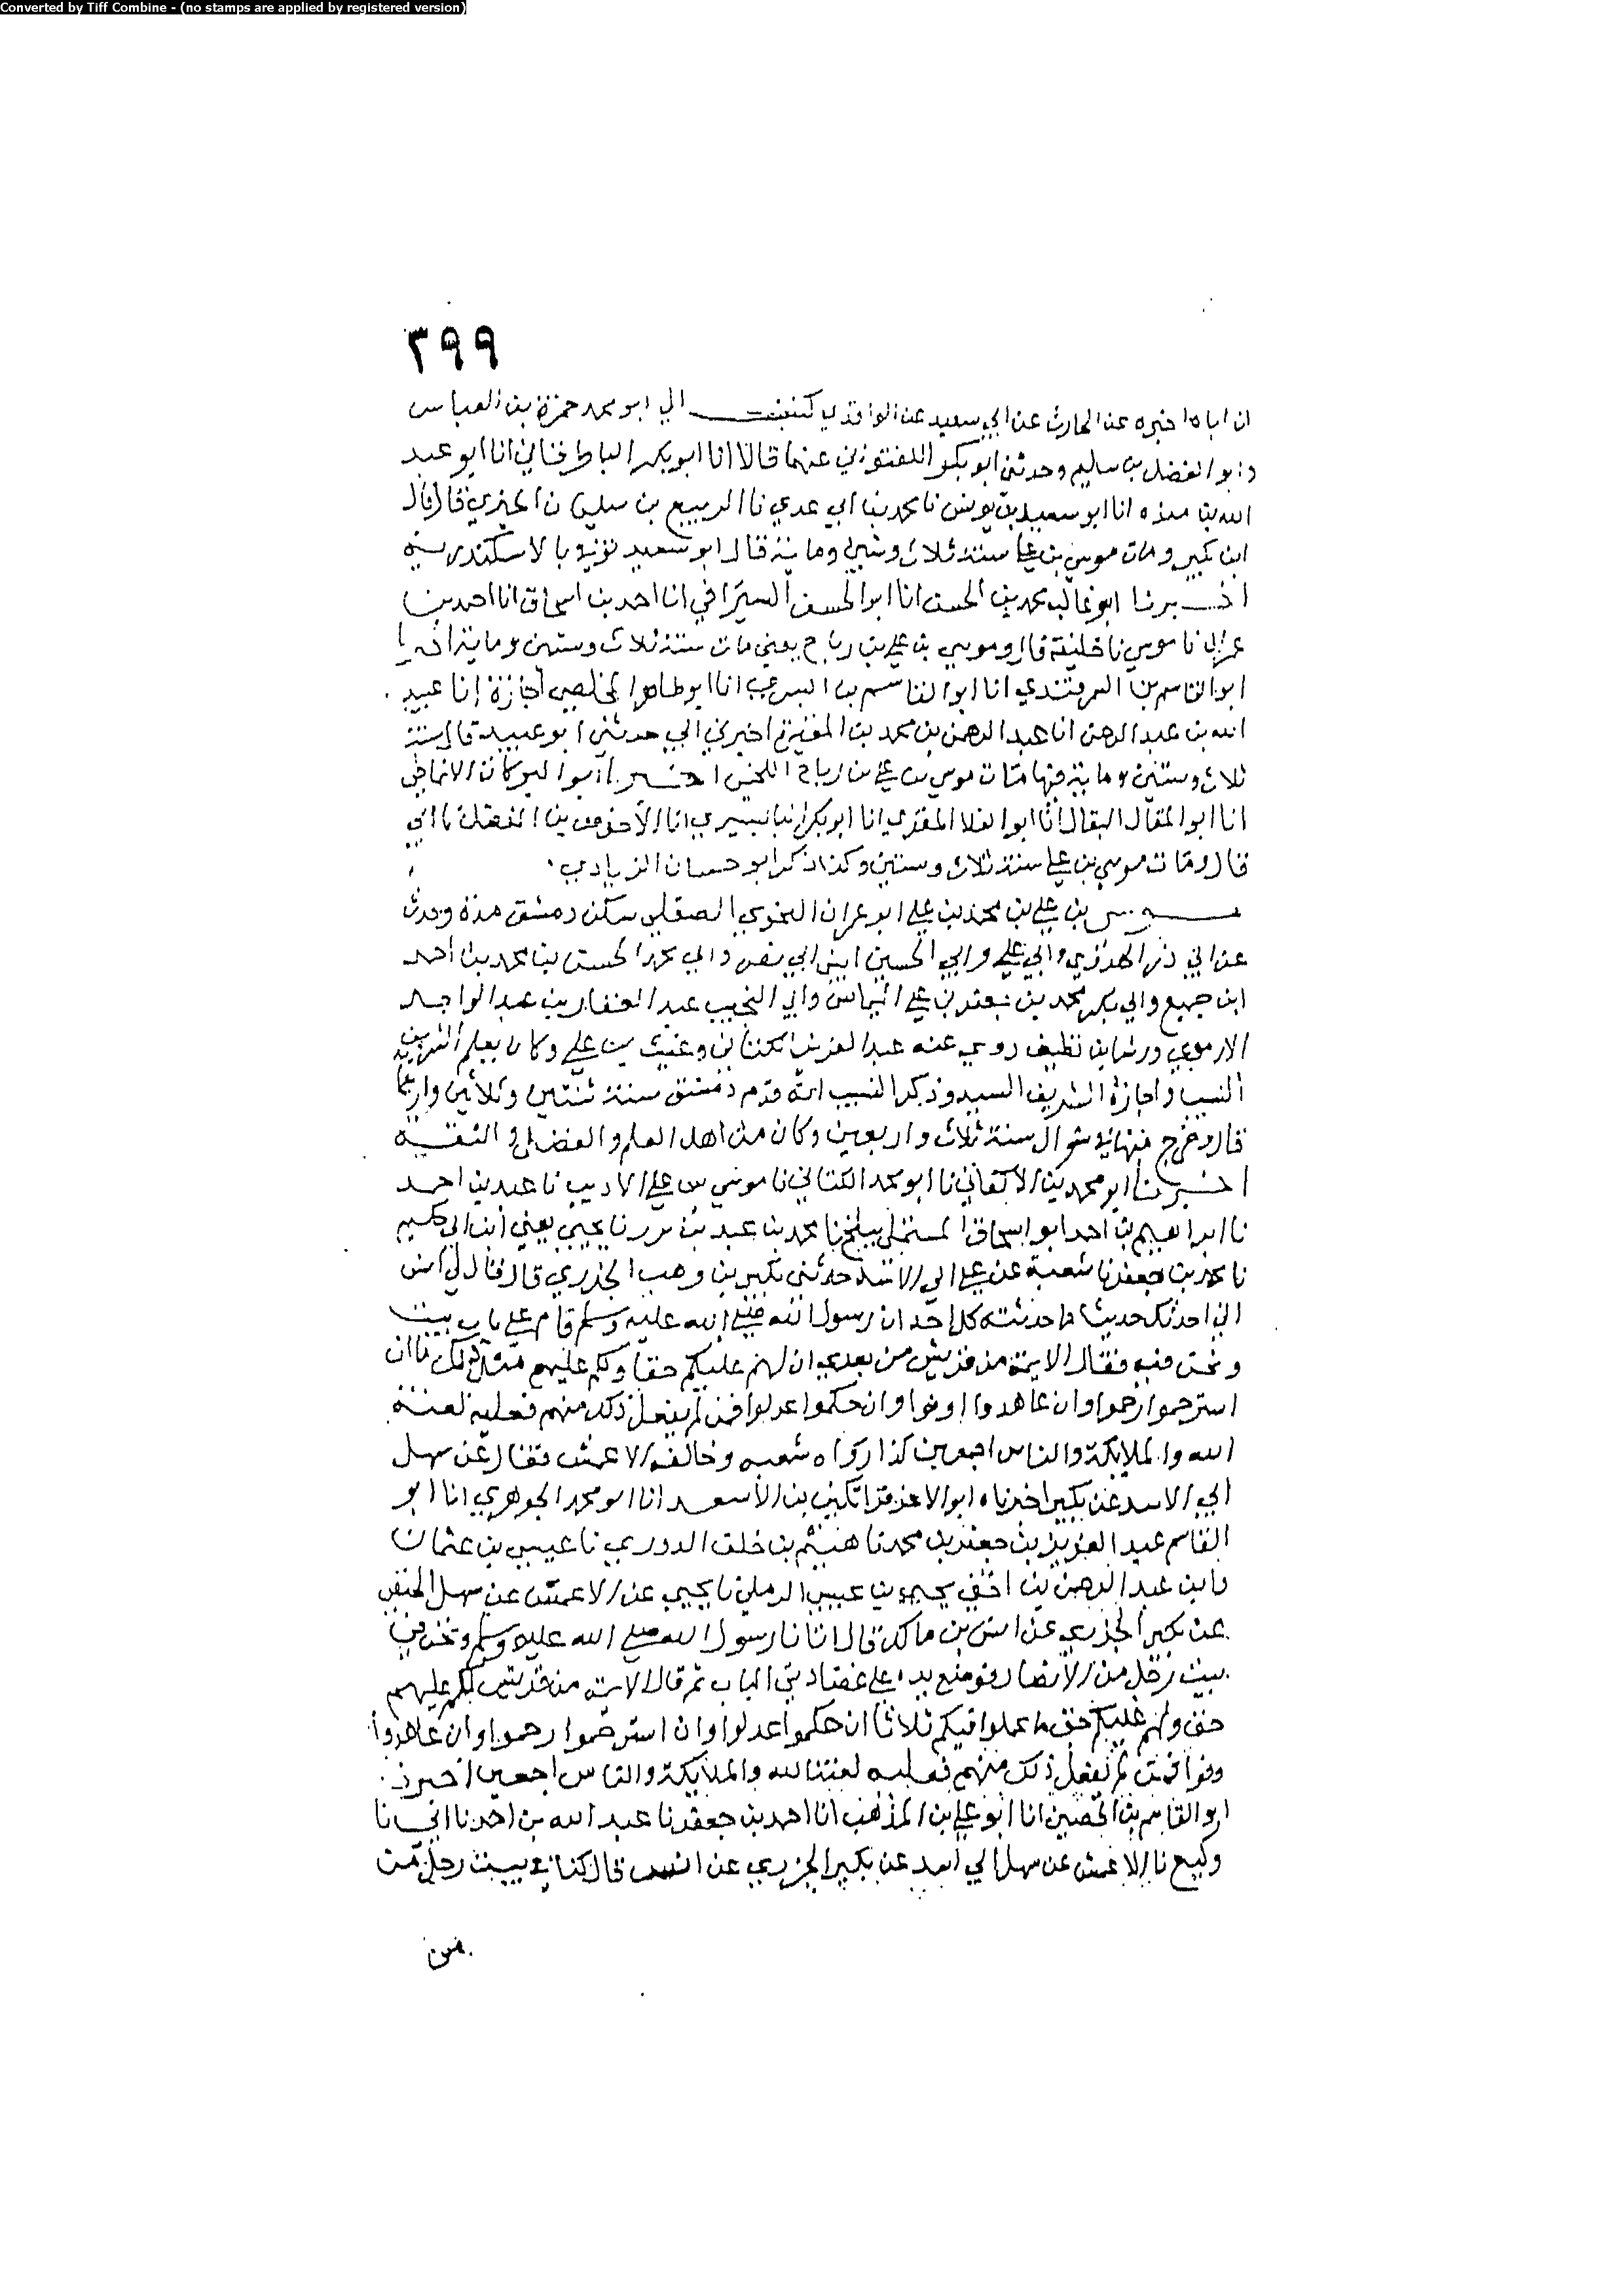 Converted by Tiff Combine - (no stamps are applied by registered version)
٣٩٩
ان اباه اخبره عن الحارث عن ابي سعيد عن الواقدي كتب الي ابو محمد حمزة بن العباس
وابو الفضل بن سليم وحدثني ابو بكر اللفتواني عنهما قالا انا ابو بكر الباطرقاني انا ابو عبد
الله بن منده انا ابو سعيد بن يونس نا محمد بن ابي عدي نا الربيع بن سليمان الجيزي قال قال
ابن بكير ومات موسي بن علي سنة ثلاث وستين وماية قال ابو سعيد توفي بالاسكندرية
اخبرنا ابو غالب محمد بن الحسن انا ابو الحسن السيرافي انا احمد بن اسحاق انا احمد بن
عمران نا موسي نا خليفة قال وموسي بن علي بن رباح يعني مات سنة ثلاث وستين وماية اخبرنا
ابو القاسم بن السمرقندي انا ابو القاسم بن البسري انا ابو طاهر المخلص اجازة انا عبيد
الله بن عبد الرحمن انا عبد الرحمن بن محمد بن المغيرة اخبرني ابي حدثني ابو عبيد قال سنة
ثلاث وستين وماية فيها مات موسي بن علي بن رباح اللخمي اخبرنا ابو البركات الانماطي
انا ابو المعالي البقال انا ابو العلا المقري انا ابو بكر البابسيري انا الاحوص بن المفضل نا ابي
قال ومات موسي بن علي سنة ثلاث وستين وكذا ذكر ابو حسان الزيادي
موسي بن علي بن محمد بن علي ابو عمران النحوي الصقلي سكن دمشق مدة وحدث
عن ابي ذر الهروي وابي علي وابي الحسين ابني ابي نصر وابي محمد الحسن بن محمد بن احمد
ابن جميع وابي بكر محمد بن جعفر بن علي الميماسي وابي النجيب عبد الغفار بن عبد الواحد
الارموي ورشا بن نظيف روي عنه عبد العزيز الكتاني وغيث بن علي وكان يعلم الشريف
النسيب واجازة الشريف السيد وذكر النسيب انه قدم دمشق سنة ثنتين وثلاثين واربعما
قال وخرج منها في شوال سنة ثلاث واربعين وكان من اهل العلم والفضل والثقه
اخبرنا ابو محمد بن الاكفاني نا ابو محمد الكتاني نا موسي بن علي الاديب نا عبد بن احمد
نا ابراهيم بن احمد ابو اسحاق المستملي ببلخ نا محمد بن عبد بن نا يحيي يعني ابن ابي حكيم
نا محمد بن جعفر نا شعبة عن علي ابي الاسد حدثني بكير بن وهب الجزري قال قال لي انس
اني احدثك حديثا ما حدثته كل احد ان رسول الله صلى الله عليه وسلم قام علي باب بيت
ونحن فيه فقال الايمة من قريش من بعدي ان لهم عليكم حقا ولكم عليهم مثل ذلك ما ان
استرحموا رحموا وان عاهدوا اوفوا وان حكموا عدلوا فمن لم يفعل ذلك منهم فعليه لعنة
الله والملايكة والناس اجمعين كذا رواه شعبه وخالفه الاعمش فقال عن سهل
ابي الاسد عن بكير اخبرناه ابو الاعز قراتكين بن الاسعد انا ابو محمد الجوهري انا ابو
القاسم عبد العزيز بن جعفر بن محمد نا هيثم بن خلف الدوري نا عيسي بن عثمان
نا ابن عبد الرحمن بن اخي يحيي بن عيسي الرملي نا يحيي عن الاعمش عن سهل الحنفي
عن بكير الجزري عن انس بن مالك قال اتانا رسول الله صلى الله عليه وسلم ونحن في
بيت رجل من الانصار فوضع يده علي عضادتي الباب ثم قال الايمه من قريش لكم عليهم
حق ولهم عليكم حق ما عملوا فيكم ثلاثا ان حكموا عدلوا وان استرحموا رحموا وان عاهدوا
وفوا فمن لم يفعل ذلك منهم فعليه لعنة الله والملايكة والناس اجمعين اخبرنا
ابو القاسم بن الحصين انا ابو علي بن المذهب انا احمد بن جعفر نا عبد الله بن احمد نا ابي نا
وكيع نا الاعمش عن سهل ابي اسد عن بكير الجزري عن انس قال كنا في بيت رجل من
من